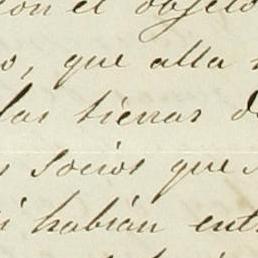 con el objeto
que alla
las tierras de
socios que
habian entr